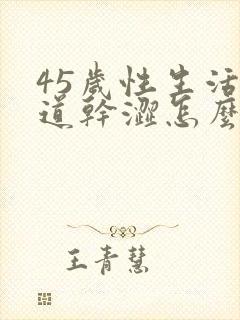 45歲性生活
道幹澀怎麼
王青慧